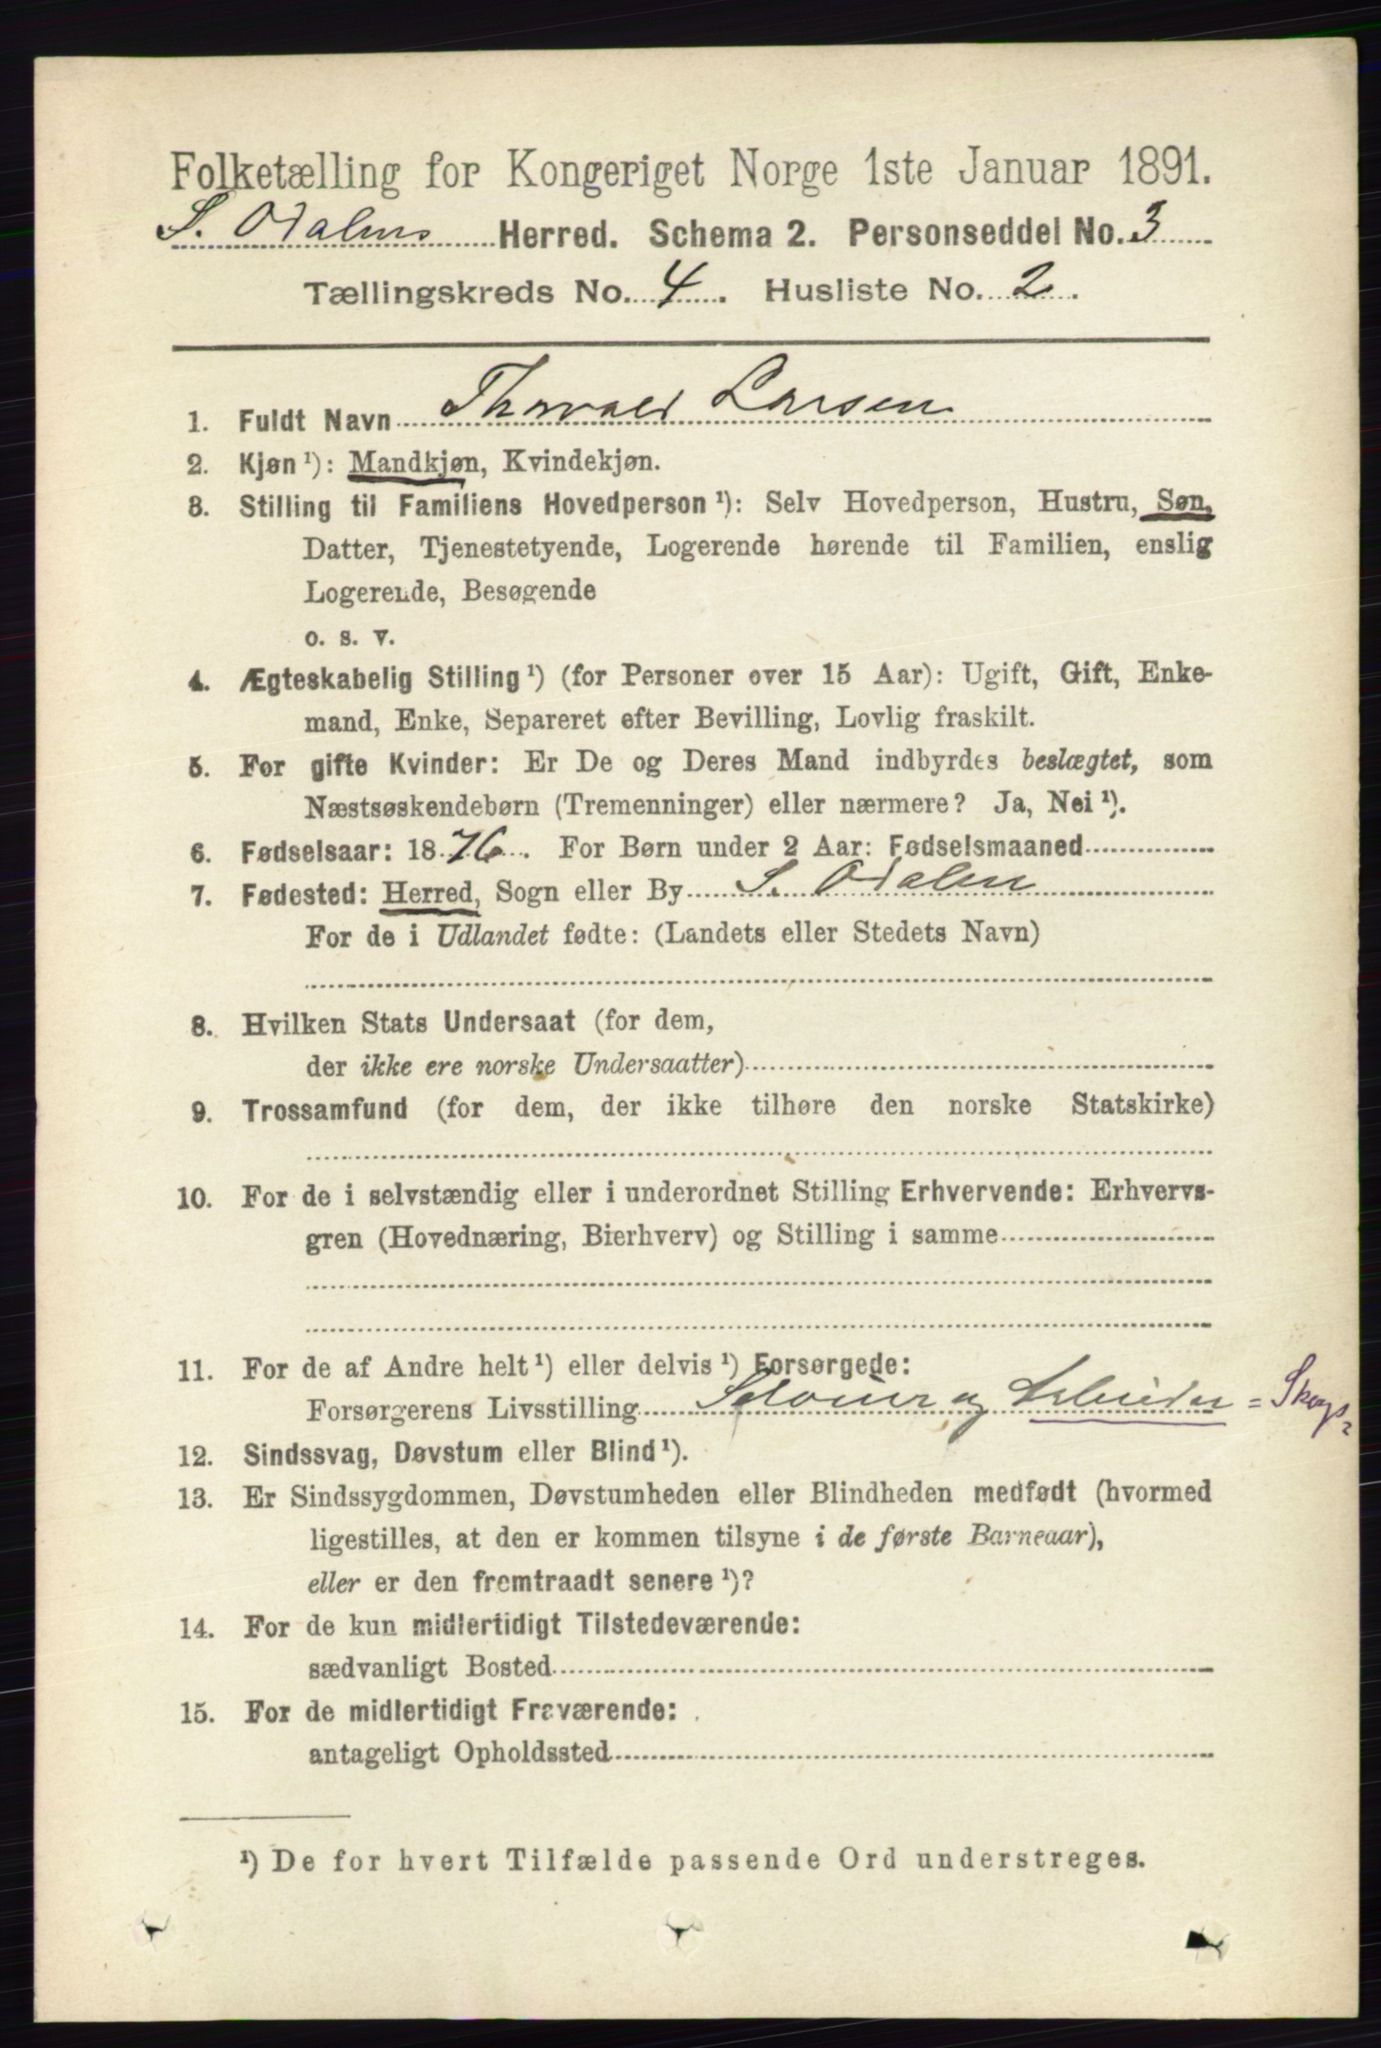 Folketælling for Kongeriget Norge 1ste Januar 1891.
S. Odalens Herred. Schema 2. Personseddel No. 3
Tællingskreds No. 4. Husliste No. 2.
1. Fuldt Navn Thorvald Larsen
2. Kjøn ¹): Mandkjøn, Kvindekjøn.
3. Stilling til Familiens Hovedperson ¹): Selv Hovedperson, Hustru, Søn,
Datter, Tjenestetyende, Logerende hørende til Familien, enslig
Logerende, Besøgende
o. s. v.
4. Ægteskabelig Stilling ¹) (for Personer over 15 Aar): Ugift, Gift, Enke-
mand, Enke, Separeret efter Bevilling, Lovlig fraskilt.
5. For gifte Kvinder: Er De og Deres Mand indbyrdes beslægtet, som
Næstsøskendebørn (Tremenninger) eller nærmere? Ja, Nei ¹).
6. Fødselsaar: 1876. For Børn under 2 Aar: Fødselsmaaned
7. Fødested: Herred, Sogn eller By S. Odalen
For de i Udlandet fødte: (Landets eller Stedets Navn)
8. Hvilken Stats Undersaat (for dem,
der ikke ere norske Undersaatter)
9. Trossamfund (for dem, der ikke tilhøre den norske Statskirke)
10. For de i selvstændig eller i underordnet Stilling Erhvervende: Erhvervs-
gren (Hovednæring, Bierhverv) og Stilling i samme
11. For de af Andre helt ¹) eller delvis ¹) Forsørgede:
Forsørgerens Livsstilling Selveier og Arbeider = Skogs=
12. Sindssvag, Døvstum eller Blind ¹).
13. Er Sindssygdommen, Døvstumheden eller Blindheden medfødt (hvormed
ligestilles, at den er kommen tilsyne i de første Barneaar),
eller er den fremtraadt senere ¹)?
14. For de kun midlertidigt Tilstedeværende:
sædvanligt Bosted
15. For de midlertidigt Fraværende:
antageligt Opholdssted
¹) De for hvert Tilfælde passende Ord understreges.